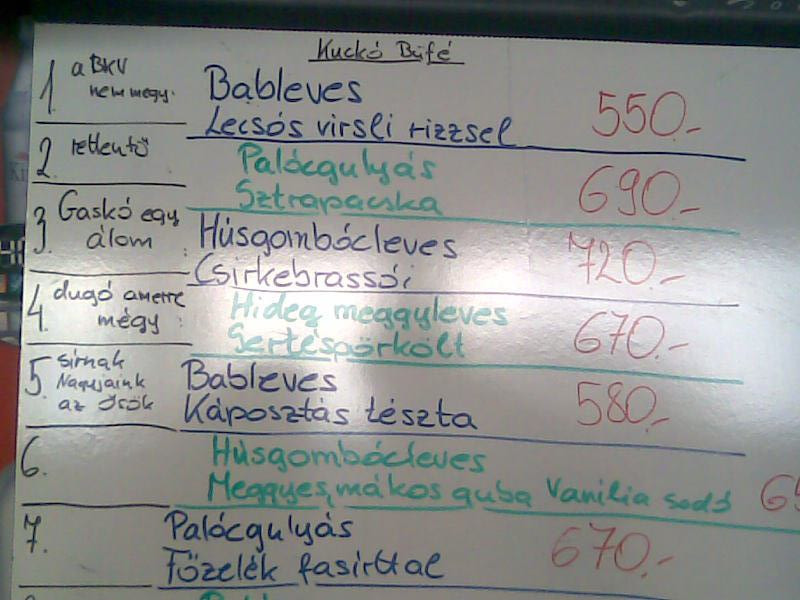 Kuckó Büfé
1 a BKV
nem megy.
Bableves
Lecsós virsli rizzsel
550.-
2. rettentő
Palócgulyás
Sztrapacska
690.-
3. Gaskó egy
álom
Húsgombócleves
Csirkebrassói
720.-
4. dugó amerre
mégy
Hideg meggyleves
Sertéspörkölt
670.-
5. sírnak
Nagyjaink
az Ősök
Bableves
Káposztás tészta
580.-
6.
Húsgombócleves
Meggyes, mákos guba Vanilia sodó
7.
Palócgulyás
Főzelék fasírttal
670.-